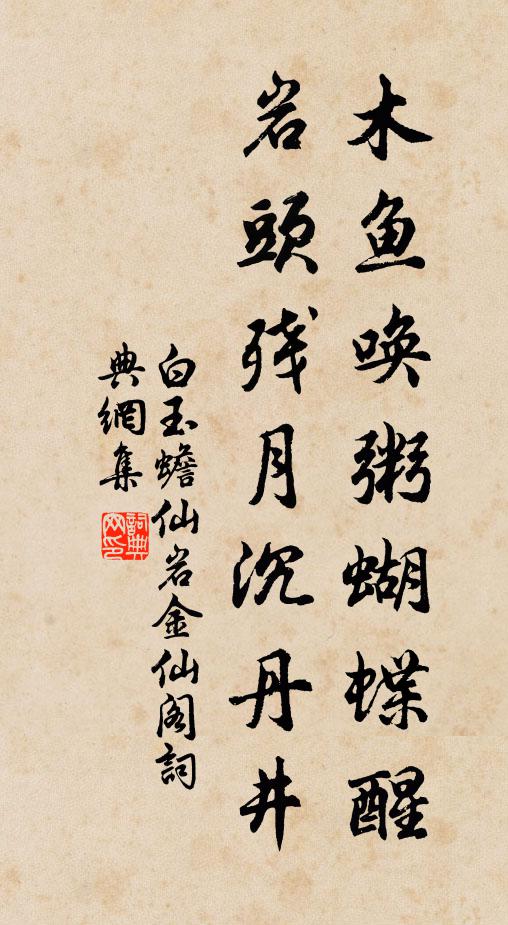 木鱼唤粥蝴蝶醒
岩頭残月沉丹井
白玉蟾仙岩金仙阁詞
典網集
詞典网印